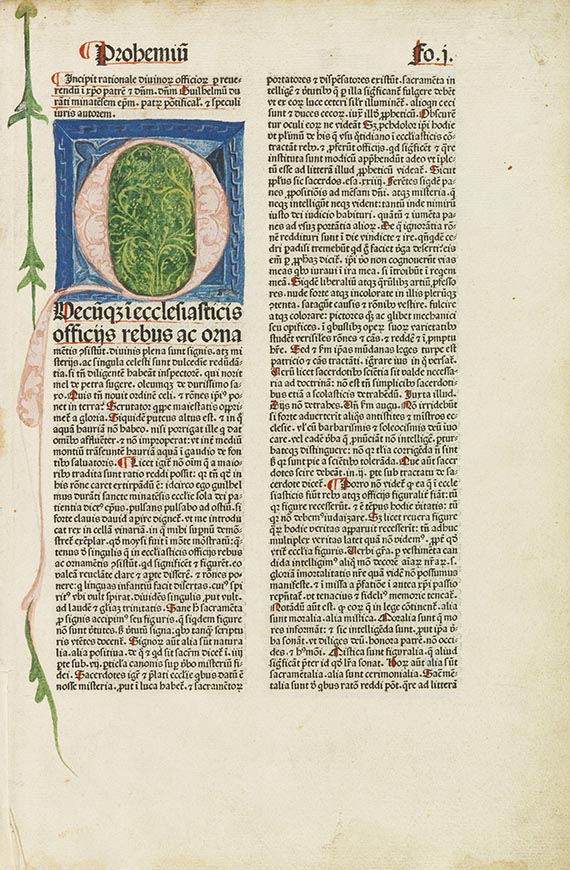 Prohemiū
Fo. j.
Incipit rationale diuinoꝝ officioꝝ ꝑ reue-
rendū ī xp̄o patrē ⁊ dn̄m. dn̄m Guilhelmū du
rāti minatēsem ep̄m. patꝝ pōtifical'. ⁊ speculi
iuris autorem.
Quecūqꝫ ī ecclesiasticis
officijs rebus ac orna
mētis ꝯsistūt. diuinis plena sunt signis. atqꝫ mi
sterijs. ac singula celesti sunt dulcedie redūdā-
tia. si tn̄ diligentē habeāt inspectorē. qui norit
mel de petra sugere. oleumqꝫ de durissimo sa-
xo. Quis tn̄ nouit ordinē celi. ⁊ rōnes ip̄iꝰ po-
net in terra? Scrutator qꝑpe maiestatis oppri
met a gloria. Siquidē puteus altus est. ⁊ in q̄
aquā hauriā nō habeo. nisi porrigat ille q̄ dat
omībꝰ affluēter. ⁊ nō improperat: vt int̄ mediū
montiū trāseuntē hauriā aquā ī gaudio de fon
tibꝰ saluatoris. Licet igit̄ nō oīm q̄ a maiori-
bꝰ tradita sunt ratio reddi possit: qꝛ tn̄ qd̄ in
his rōne caret extirpādū ē: idcirco ego guilhel
mus durāti sancte minatēsis ecclīe sola dei pa-
tientia dicꝰ ep̄us. pulsans pulsabo ad ostiū. si
forte clauis dauid aꝑire dignet̄. vt me introdu
cat rex in cellā vinariā. in q̄ mihi supnū demō-
stret̄ exēplar. qd̄ moysi fuit ī mōte mōstratū: q̄-
tenus ð singulis q̄ in ecclīasticis officijs rebus
ac ornamētis ꝯsistūt. qd̄ significēt ⁊ figurēt. eo
valeā reuclāte clare ⁊ apte disserē. ⁊ rōnes po-
nere: q̄ linguas infantiū facit disertas. cuiꝰ spi
ritꝰ vbi vult spirat. diuidēs singulis, put vult.
ad laudē ⁊ gl'iaꝫ trinitatis. Sane h̄ sacramēta
ꝑ signis accipim̄ seu figuris. q̄ siqdem figure
nō sunt ꝟtutes. sꝫ ꝟtutū signa: qbꝰ tanqꝫ scriptu
ris vtētes docent̄. Signoꝝ aūt alia sūt natura
lia. alia positiua. de q̄ ⁊ qd̄ sit sacr̄m dicet̄ ī. iiij
ꝑte sub. vij. pticl'a canonis sup ꝟbo misteriū fi
dei. Sacerdotes igit̄ ⁊ p̄lati ecclīe qbus datū ē
nosse misteria, put ī luca habet̄. ⁊ sacramētoꝝ
portatores ⁊ dispēsatores existūt. sacramēta in
tellige ⁊ ꝟtutibꝰ q̄ ꝑ illa significant̄ fulgere debēt
vt ex eoꝝ luce ceteri sil'r illuminent̄. alioqn ceci
sunt ⁊ duces cecoꝝ. iux̄ illd̄ ꝓpheticū. Obscurē
tur oculi eoꝝ ne videāt Sꝫ pchdolor ip̄i hodie
vt plimū de his q̄ vsu q̄tidiano ī ecclīasticis con
trāctāt rebꝰ. ⁊ ꝓferūt officijs. qd̄ significēt ⁊ qre
instituta sunt modicū apphendūt adeo vt iple-
tū esse ad litterā illud ꝓpheticū videat̄. Sicut
ppl'us sic sacerdos. esa. xxiiij. Ferētes siqdē pa-
nes ꝓpositiōis ad mēsam dn̄i. atqꝫ misteria. q̄
neqꝫ intelligūt neqꝫ vident: tantū inde nimirū
iusto dei iudicio habituri. quātū ⁊ iumēta pa-
nes ad vsus portātia alioꝝ. De q̄ ignorātia rō-
nē reddituri sunt ī die vindicte ⁊ ire. qn̄qdē ce-
dri padisi tremebūt qd̄ ḡ faciet ꝟga deserti: eis
em̄ ꝑ ꝓphaꝫ dicit̄. ip̄i ꝟo nō cognouerūt vias
meas qbꝰ iuraui ī ira mea. si ītroibūt ī reqem
meā. Siqdē liberaliū atqꝫ qrūlibꝫ artiū ꝓfesso
res. nude forte atqꝫ incolorate in illis plerūqꝫ
ꝯtenta. satagūt causis ⁊ rōnibꝰ vestire. fulcire
atqꝫ colorare: pictores qꝫ ac qlibet mechanici
seu opifices. ī qbuslibꝫ operꝝ suoꝝ varietatibꝰ
studēt verisiles rōnes ⁊ cās. ⁊ reddē ⁊ ī ꝓmptu
hr̄e. Sed ⁊ fm̄ īgas mūdanas leges turpe est
patricio ⁊ cās tractāti. igrare ius in q̄ versat̄.
Verū licet sacerdotibꝰ sciētia sit valde necessa-
ria ad doctrinā: nō est tn̄ simplicibꝰ sacerdoti-
bꝰ etiā a scolasticis detrahēdū. Iuxta illud.
Dijs nō detrahes. Vn̄ fm̄ augꝰ. Nō irridebūt
si forte aduerterīt aliqs antistites ⁊ mīstros ec-
clesie. vel cū barbarismis ⁊ soloecismis deū iuo
care. vel eadē ꝟba q̄ ꝓnūciāt nō intelligē. ptur-
bateqꝫ distinguere: nō qꝛ ista corrigēda nō sint
sꝫ qꝛ sunt pie a sciētibꝰ tolerāda. Que aūt sacer
dotes scire debeāt. in. ij. ꝑte sub tractatu de sa-
cerdote dicet̄. Porro nō videt̄ q̄ ea q̄ ī eccle
siasticis fiūt rebꝰ atqꝫ officijs figuralit̄ fiāt: tū
qꝛ figure recesserūt. ⁊ ē tēpus hodie ꝟitatis: tū
qꝛ nō debem̄ iudaizare. Sꝫ licet reuera figure
qꝝ hodie veritas apparuit recesserīt: tn̄ adhuc
multiplex veritas latet quā nō videm̄. ꝓpt̄ qd̄
vtit̄ ecclīa figuris. Verbi gr̄a. ꝑ vestimēta can
dida intelligim̄ aliq̄ mō decorē aīaꝝ nr̄aꝝ. s.
gloriā īmortalitatis nr̄e quā videre nō possumus
manifeste. ⁊ ī missa ꝓ p̄fatiōe ī antea xp̄i passio
rep̄ntat̄. vt tenaciꝰ ⁊ fideliꝰ memorie teneat̄.
Notādū aūt est. q̄ eoꝝ q̄ in lege cōtinent̄. alia
sunt moralia. alia mistica. Moralia sunt q̄ mo
res informāt: ⁊ sic intelligēda sunt. put ip̄a ꝟ-
ba sonāt. vt diliges deū. honora patrē. nō occi-
des. ⁊ hꝰmōi. Mistica sunt figuralia. q̄ aliud
significāt ꝑter id qd̄ l'ra sonat. Hoꝝ aūt alia sūt
sacramētalia. alia sunt cerimonialia. Sacrāmē-
talia sunt ð qbus ratō reddi pōt. qre ad litterā